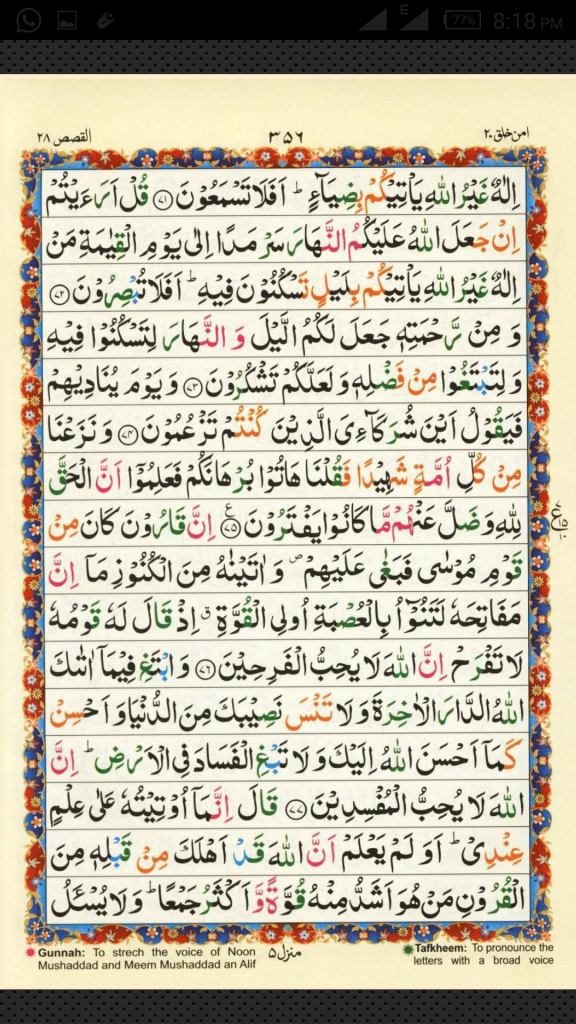 E 77% 8:18 PM
امن خلق ۲۰ ۳۵۶ القصص ۲۸
اِلٰهٌ غَيْرُ اللّٰهِ يَاْتِيْكُمْ بِضِيَآءٍ ؕ اَفَلَا تَسْمَعُوْنَ ﴿۷۱﴾ قُلْ اَرَءَيْتُمْ
اِنْ جَعَلَ اللّٰهُ عَلَيْكُمُ النَّهَارَ سَرْمَدًا اِلٰى يَوْمِ الْقِيٰمَةِ مَنْ
اِلٰهٌ غَيْرُ اللّٰهِ يَاْتِيْكُمْ بِلَيْلٍ تَسْكُنُوْنَ فِيْهِ ؕ اَفَلَا تُبْصِرُوْنَ ﴿۷۲﴾
وَ مِنْ رَّحْمَتِهٖ جَعَلَ لَكُمُ الَّيْلَ وَ النَّهَارَ لِتَسْكُنُوْا فِيْهِ
وَ لِتَبْتَغُوْا مِنْ فَضْلِهٖ وَ لَعَلَّكُمْ تَشْكُرُوْنَ ﴿۷۳﴾ وَ يَوْمَ يُنَادِيْهِمْ
فَيَقُوْلُ اَيْنَ شُرَكَآءِىَ الَّذِيْنَ كُنْتُمْ تَزْعُمُوْنَ ﴿۷۴﴾ وَ نَزَعْنَا
مِنْ كُلِّ اُمَّةٍ شَهِيْدًا فَقُلْنَا هَاتُوْا بُرْهَانَكُمْ فَعَلِمُوْۤا اَنَّ الْحَقَّ
لِلّٰهِ وَ ضَلَّ عَنْهُمْ مَّا كَانُوْا يَفْتَرُوْنَ ﴿۷۵﴾ ع اِنَّ قَارُوْنَ كَانَ مِنْ
ع ۱۵ ۱۰
قَوْمِ مُوْسٰى فَبَغٰى عَلَيْهِمْ ۪ وَ اٰتَيْنٰهُ مِنَ الْكُنُوْزِ مَاۤ اِنَّ
مَفَاتِحَهٗ لَتَنُوْٓاُ بِالْعُصْبَةِ اُولِى الْقُوَّةِ ۗ اِذْ قَالَ لَهٗ قَوْمُهٗ
لَا تَفْرَحْ اِنَّ اللّٰهَ لَا يُحِبُّ الْفَرِحِيْنَ ﴿۷۶﴾ وَ ابْتَغِ فِيْمَاۤ اٰتٰىكَ
اللّٰهُ الدَّارَ الْاٰخِرَةَ وَ لَا تَنْسَ نَصِيْبَكَ مِنَ الدُّنْيَا وَ اَحْسِنْ
كَمَاۤ اَحْسَنَ اللّٰهُ اِلَيْكَ وَ لَا تَبْغِ الْفَسَادَ فِى الْاَرْضِ ؕ اِنَّ
اللّٰهَ لَا يُحِبُّ الْمُفْسِدِيْنَ ﴿۷۷﴾ قَالَ اِنَّمَاۤ اُوْتِيْتُهٗ عَلٰى عِلْمٍ
عِنْدِىْ ؕ اَوَ لَمْ يَعْلَمْ اَنَّ اللّٰهَ قَدْ اَهْلَكَ مِنْ قَبْلِهٖ مِنَ
الْقُرُوْنِ مَنْ هُوَ اَشَدُّ مِنْهُ قُوَّةً وَّ اَكْثَرُ جَمْعًا ؕ وَ لَا يُسْئَلُ
Gunnah: To strech the voice of Noon
Mushaddad and Meem Mushaddad an Alif
منزل ۵
Tafkheem: To pronounce the
letters with a broad voice